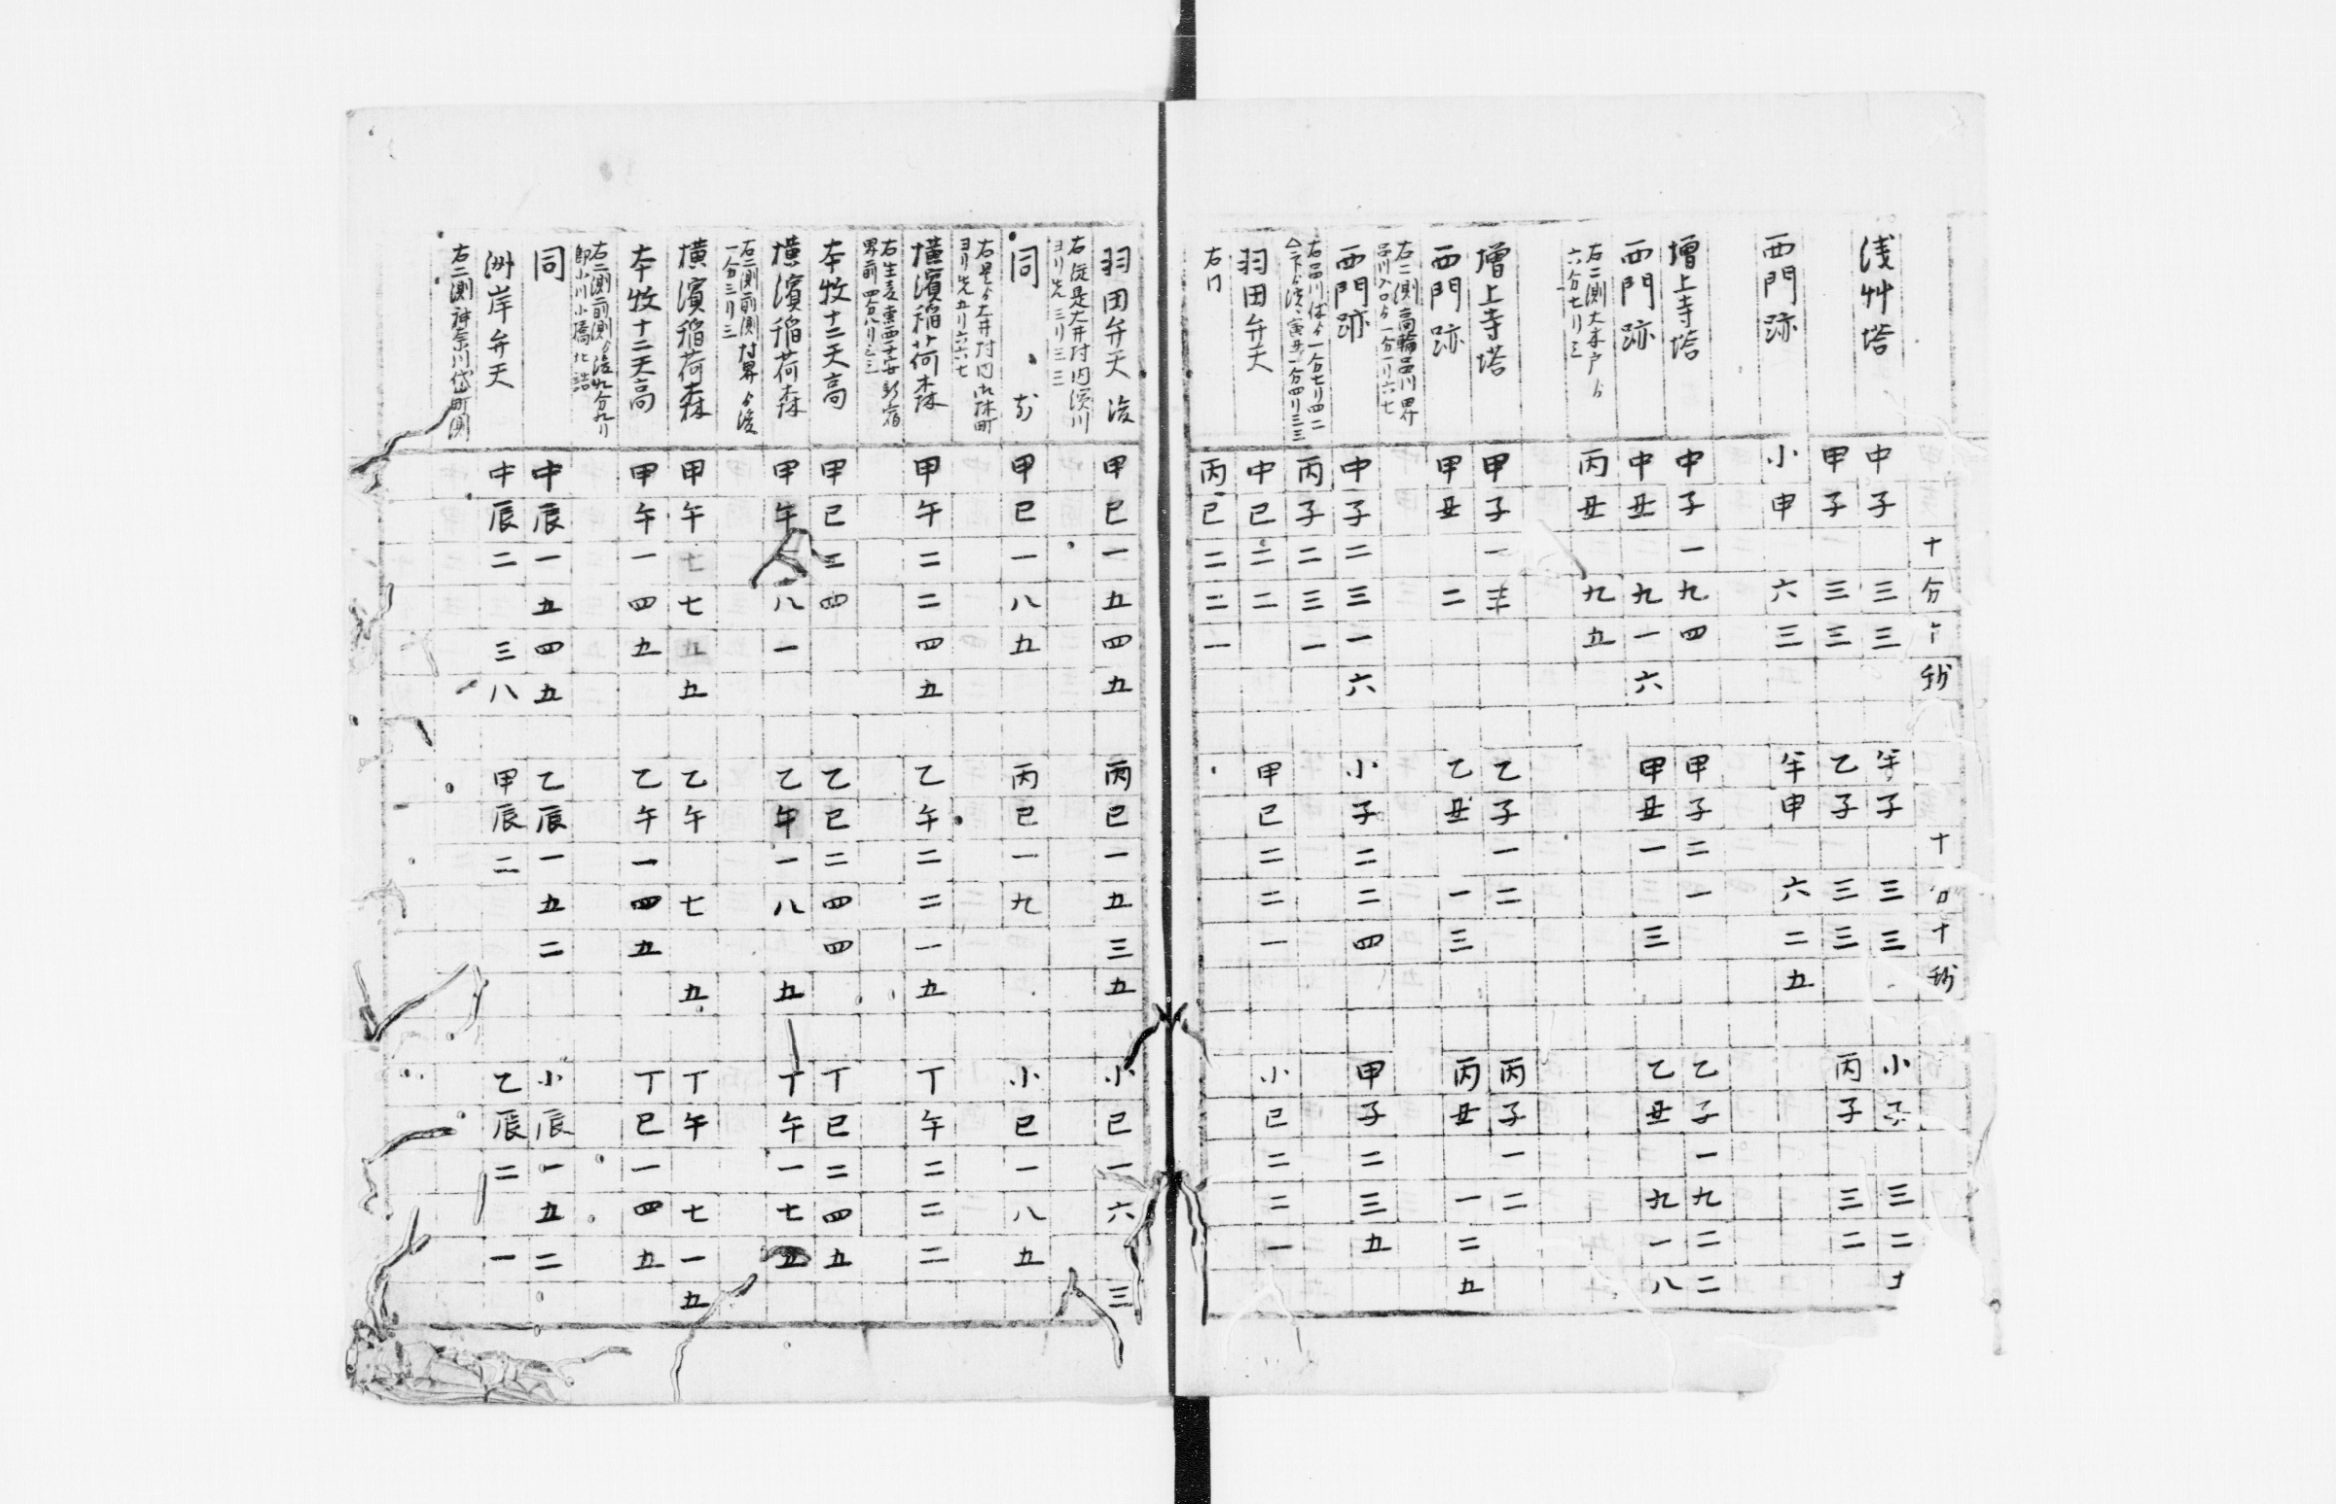 十分十秒 十分十秒
浅艸塔 中子三三 午子三三 小子三二
甲子三三 乙子三三 丙子三二
西門跡 小申六三 午申六二五
増上寺塔 中子一九四 甲子二一 乙子一九二二
西門跡 中丑九一六 甲丑一三 乙丑九一八
右二測大木戸ゟ 丙丑九五
六分七リ三
増上寺塔 甲子一 乙子一二 丙子一二
西門跡 甲丑二 乙丑一三 丙丑一二五
右二測高輪品川界
品川入口ゟ一分一リ六七
西門跡 中子二三一六 小子二二四 甲子二三五
丙子二三一
羽田弁天 中巳二二 甲巳二二一 小巳二二一
丙巳二二一
羽田弁天 甲巳一五四五 丙巳一五三五 小巳一六三
右従是大井村内濱川
ヨリ先三リ三三
同 甲巳一八五 丙巳一九 小巳一八五
ヨリ先九リ六六七
横濱稲荷森 甲午二二四五 乙午二二一五 丁午二二二
界前四分八リ三三
本牧十二天高 甲巳二四 乙巳二四四 丁巳二四五
横濱稲荷森 甲午八一 乙午一八五 丁午一七五
右二測前測村界ゟ後
一分三リ三
横濱稲荷森 甲午七五 乙午七五 丁午七一五
本牧十二天高 甲午一四五 乙午一四五 丁巳一四五
右二測前測ゟ後九分九リ
即小川小橋北詰
同 中辰一五四五 乙辰一五二 小辰一五二
洲岸弁天 中辰二三八 甲辰二 乙辰二一
右二測神奈川岱町